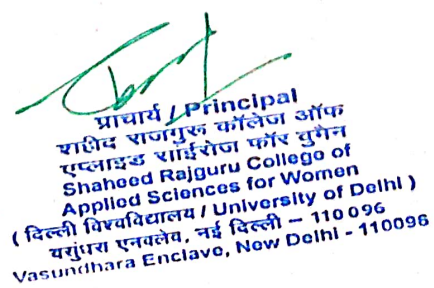 प्राचार्य / Principal
शहीद राजगुरू कॉलेज ऑफ
एप्लाइड साईंसेज फॉर वुमैन
Shaheed Rajguru College of
Applied Sciences for Women
( दिल्ली विश्वविद्यालय / University of Delhi )
वसुंधरा एनक्लेव, नई दिल्ली – 110096
Vasundhara Enclave, New Delhi - 110096